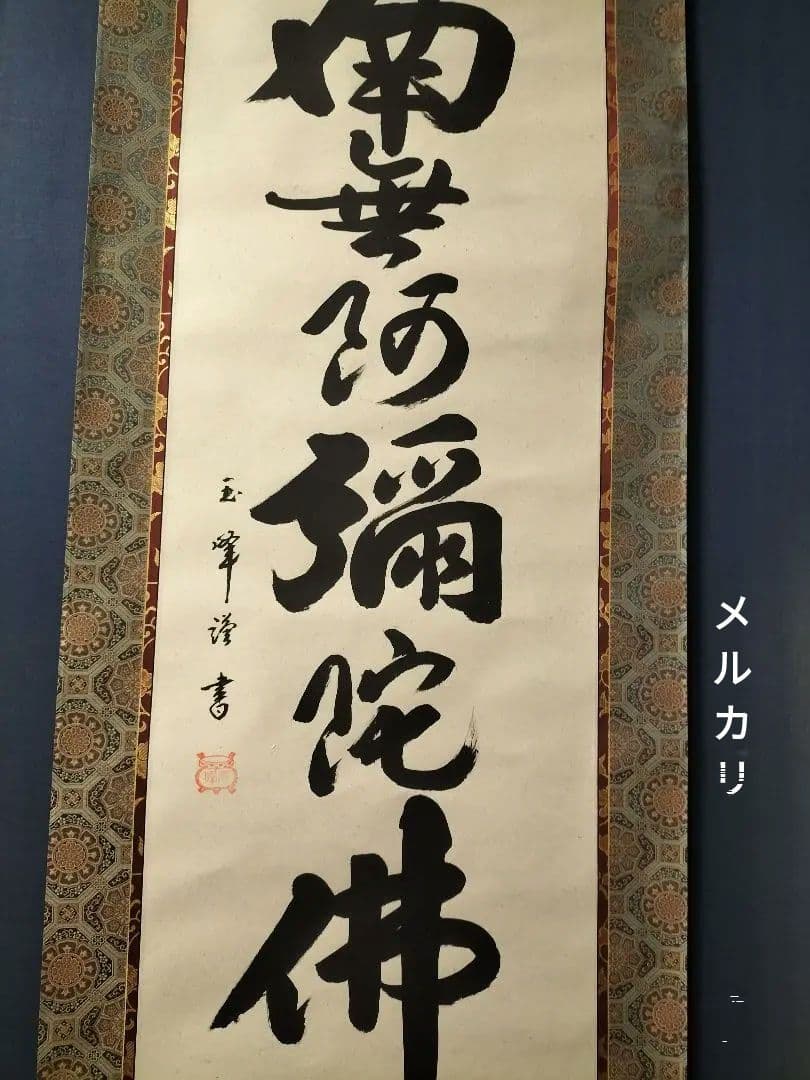 南無阿彌陀佛
玉峰謹書
メルカリ